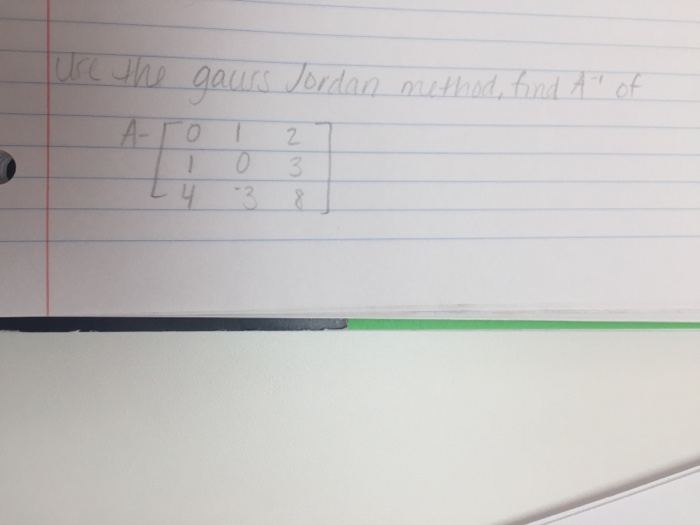 Use the gauss Jordan method, find A⁻¹ of
A- [ 0 1 2
1 0 3
4 -3 8 ]